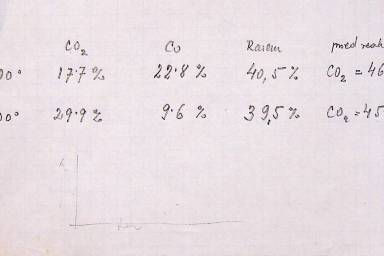 CO₂ Co Razem przed reak
00° 17·7 % 22·8 % 40,5 % CO₂ = 46
00° 29·9 % 9·6 % 39,5 % CO₂ = 45